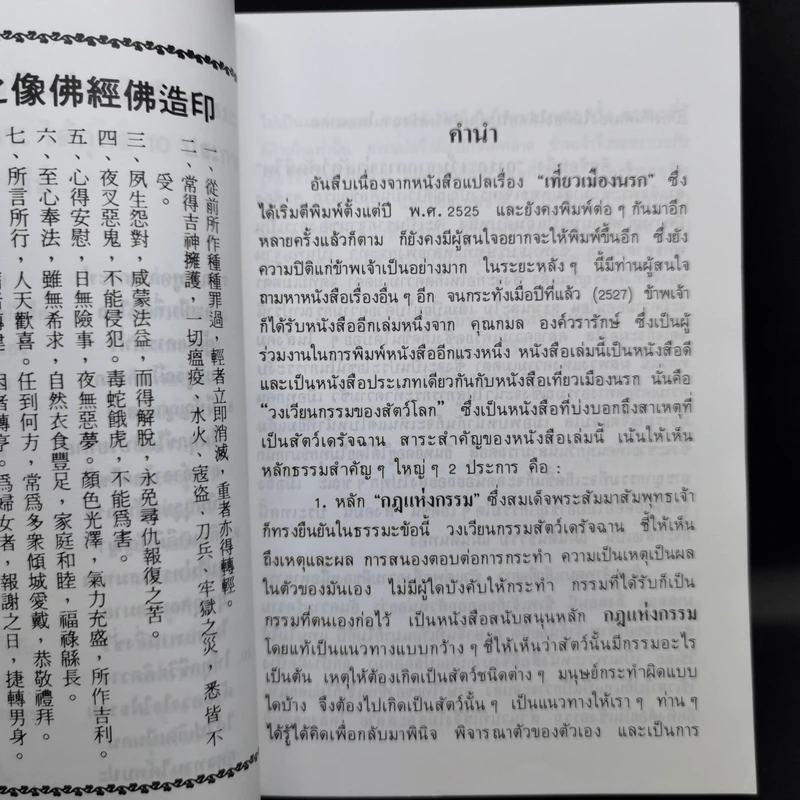 印造佛經佛像之
一、從前所作種種罪過，輕者立即消滅，重者亦得轉輕。
二、常得吉神擁護，一切瘟疫、水火、寇盜、刀兵、牢獄之災，悉皆不
受。
三、夙生怨對，咸蒙法益，而得解脫，永免尋仇報復之苦。
四、夜叉惡鬼，不能侵犯。毒蛇餓虎，不能爲害。
五、心得安慰，日無險事，夜無惡夢。顏色光澤，氣力充盛，所作吉利。
六、至心奉法，雖無希求，自然衣食豐足，家庭和睦，福祿緜長。
七、所言所行，人天歡喜。任到何方，常爲多衆傾城愛戴，恭敬禮拜。
爲婦女者，報謝之日，捷轉男身。
คำนำ
อันสืบเนื่องจากหนังสือแปลเรื่อง “เที่ยวเมืองนรก” ซึ่ง
ได้เริ่มตีพิมพ์ตั้งแต่ปี พ.ศ. 2525 และยังคงพิมพ์ต่อ ๆ กันมาอีก
หลายครั้งแล้วก็ตาม ก็ยังคงมีผู้สนใจอยากจะให้พิมพ์ขึ้นอีก ซึ่งยัง
ความปิติแก่ข้าพเจ้าเป็นอย่างมาก ในระยะหลัง ๆ นี้มีท่านผู้สนใจ
ถามหาหนังสือเรื่องอื่น ๆ อีก จนกระทั่งเมื่อปีที่แล้ว (2527) ข้าพเจ้า
ก็ได้รับหนังสืออีกเล่มหนึ่งจาก คุณกมล องค์วรารักษ์ ซึ่งเป็นผู้
ร่วมงานในการพิมพ์หนังสืออีกแรงหนึ่ง หนังสือเล่มนี้เป็นหนังสือดี
และเป็นหนังสือประเภทเดียวกันกับหนังสือเที่ยวเมืองนรก นั่นคือ
“วงเวียนกรรมของสัตว์โลก” ซึ่งเป็นหนังสือที่บ่งบอกถึงสาเหตุที่
เป็นสัตว์เดรัจฉาน สาระสำคัญของหนังสือเล่มนี้ เน้นให้เห็น
หลักธรรมสำคัญ ๆ ใหญ่ ๆ 2 ประการ คือ :
1. หลัก “กฎแห่งกรรม” ซึ่งสมเด็จพระสัมมาสัมพุทธเจ้า
ก็ทรงยืนยันในธรรมะข้อนี้ วงเวียนกรรมสัตว์เดรัจฉาน ชี้ให้เห็น
ถึงเหตุและผล การสนองตอบต่อการกระทำ ความเป็นเหตุเป็นผล
ในตัวของมันเอง ไม่มีผู้ใดบังคับให้กระทำ กรรมที่ได้รับก็เป็น
กรรมที่ตนเองก่อไว้ เป็นหนังสือสนับสนุนหลัก กฎแห่งกรรม
โดยแท้เป็นแนวทางแบบกว้าง ๆ ชี้ให้เห็นว่าสัตว์นั้นมีกรรมอะไร
เป็นต้น เหตุให้ต้องเกิดเป็นสัตว์ชนิดต่าง ๆ มนุษย์กระทำผิดแบบ
ใดบ้าง จึงต้องไปเกิดเป็นสัตว์นั้น ๆ เป็นแนวทางให้เรา ๆ ท่าน ๆ
ได้รู้ได้คิดเพื่อกลับมาพินิจ พิจารณาตัวของตัวเอง และเป็นการ